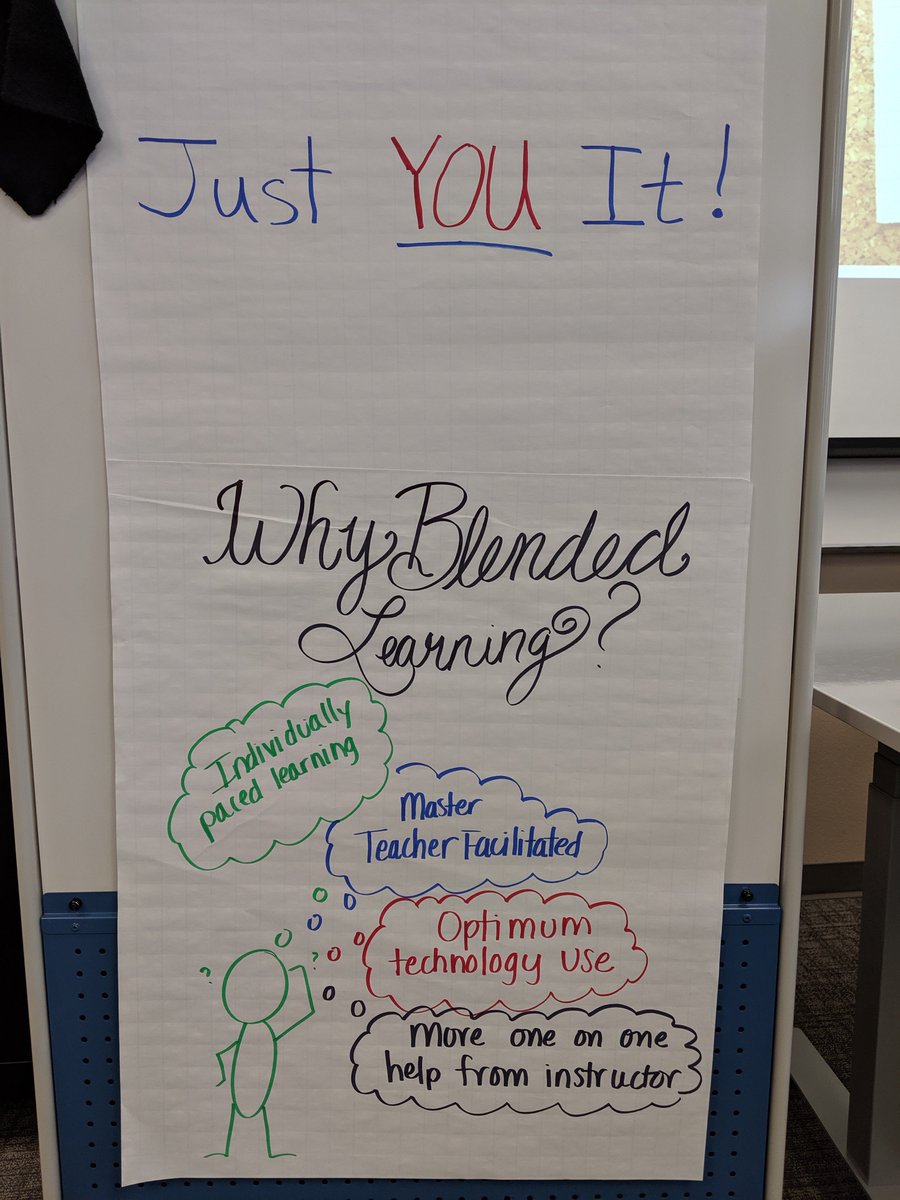 Just YOU It!
Why Blended
Learning?
Individually
paced learning
Master
Teacher Facilitated
Optimum
technology use
More one on one
help from instructor
? ?